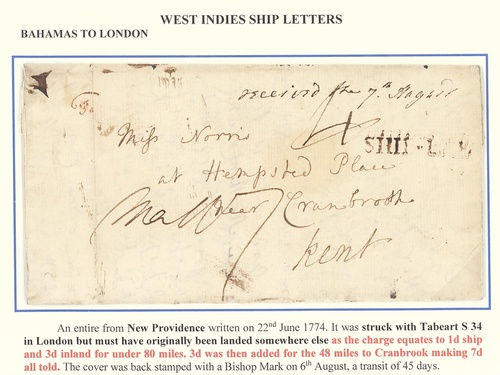 WEST INDIES SHIP LETTERS
BAHAMAS TO LONDON
received the 7th August
4
SHIP - L
Miss Norris
at Hempsted Place
near Cranbrook
7
Kent
An entire from New Providence written on 22nd June 1774. It was struck with Tabeart S 34
in London but must have originally been landed somewhere else as the charge equates to 1d ship
and 3d inland for under 80 miles. 3d was then added for the 48 miles to Cranbrook making 7d
all told. The cover was back stamped with a Bishop Mark on 6th August, a transit of 45 days.